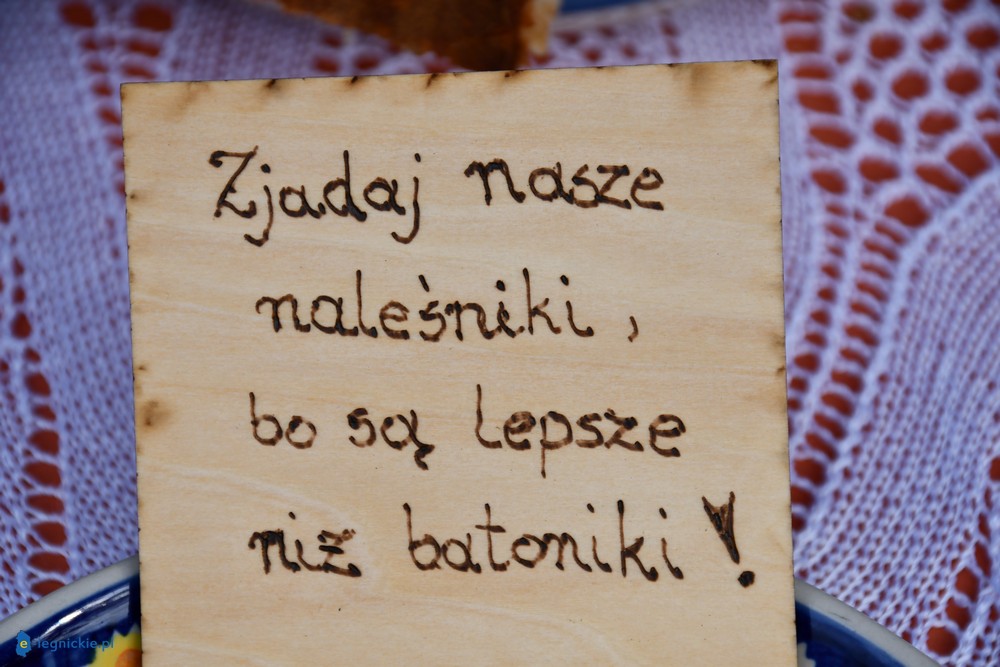 Zjadaj nasze
naleśniki,
bo są lepsze
niż batoniki!
e-legnickie.pl